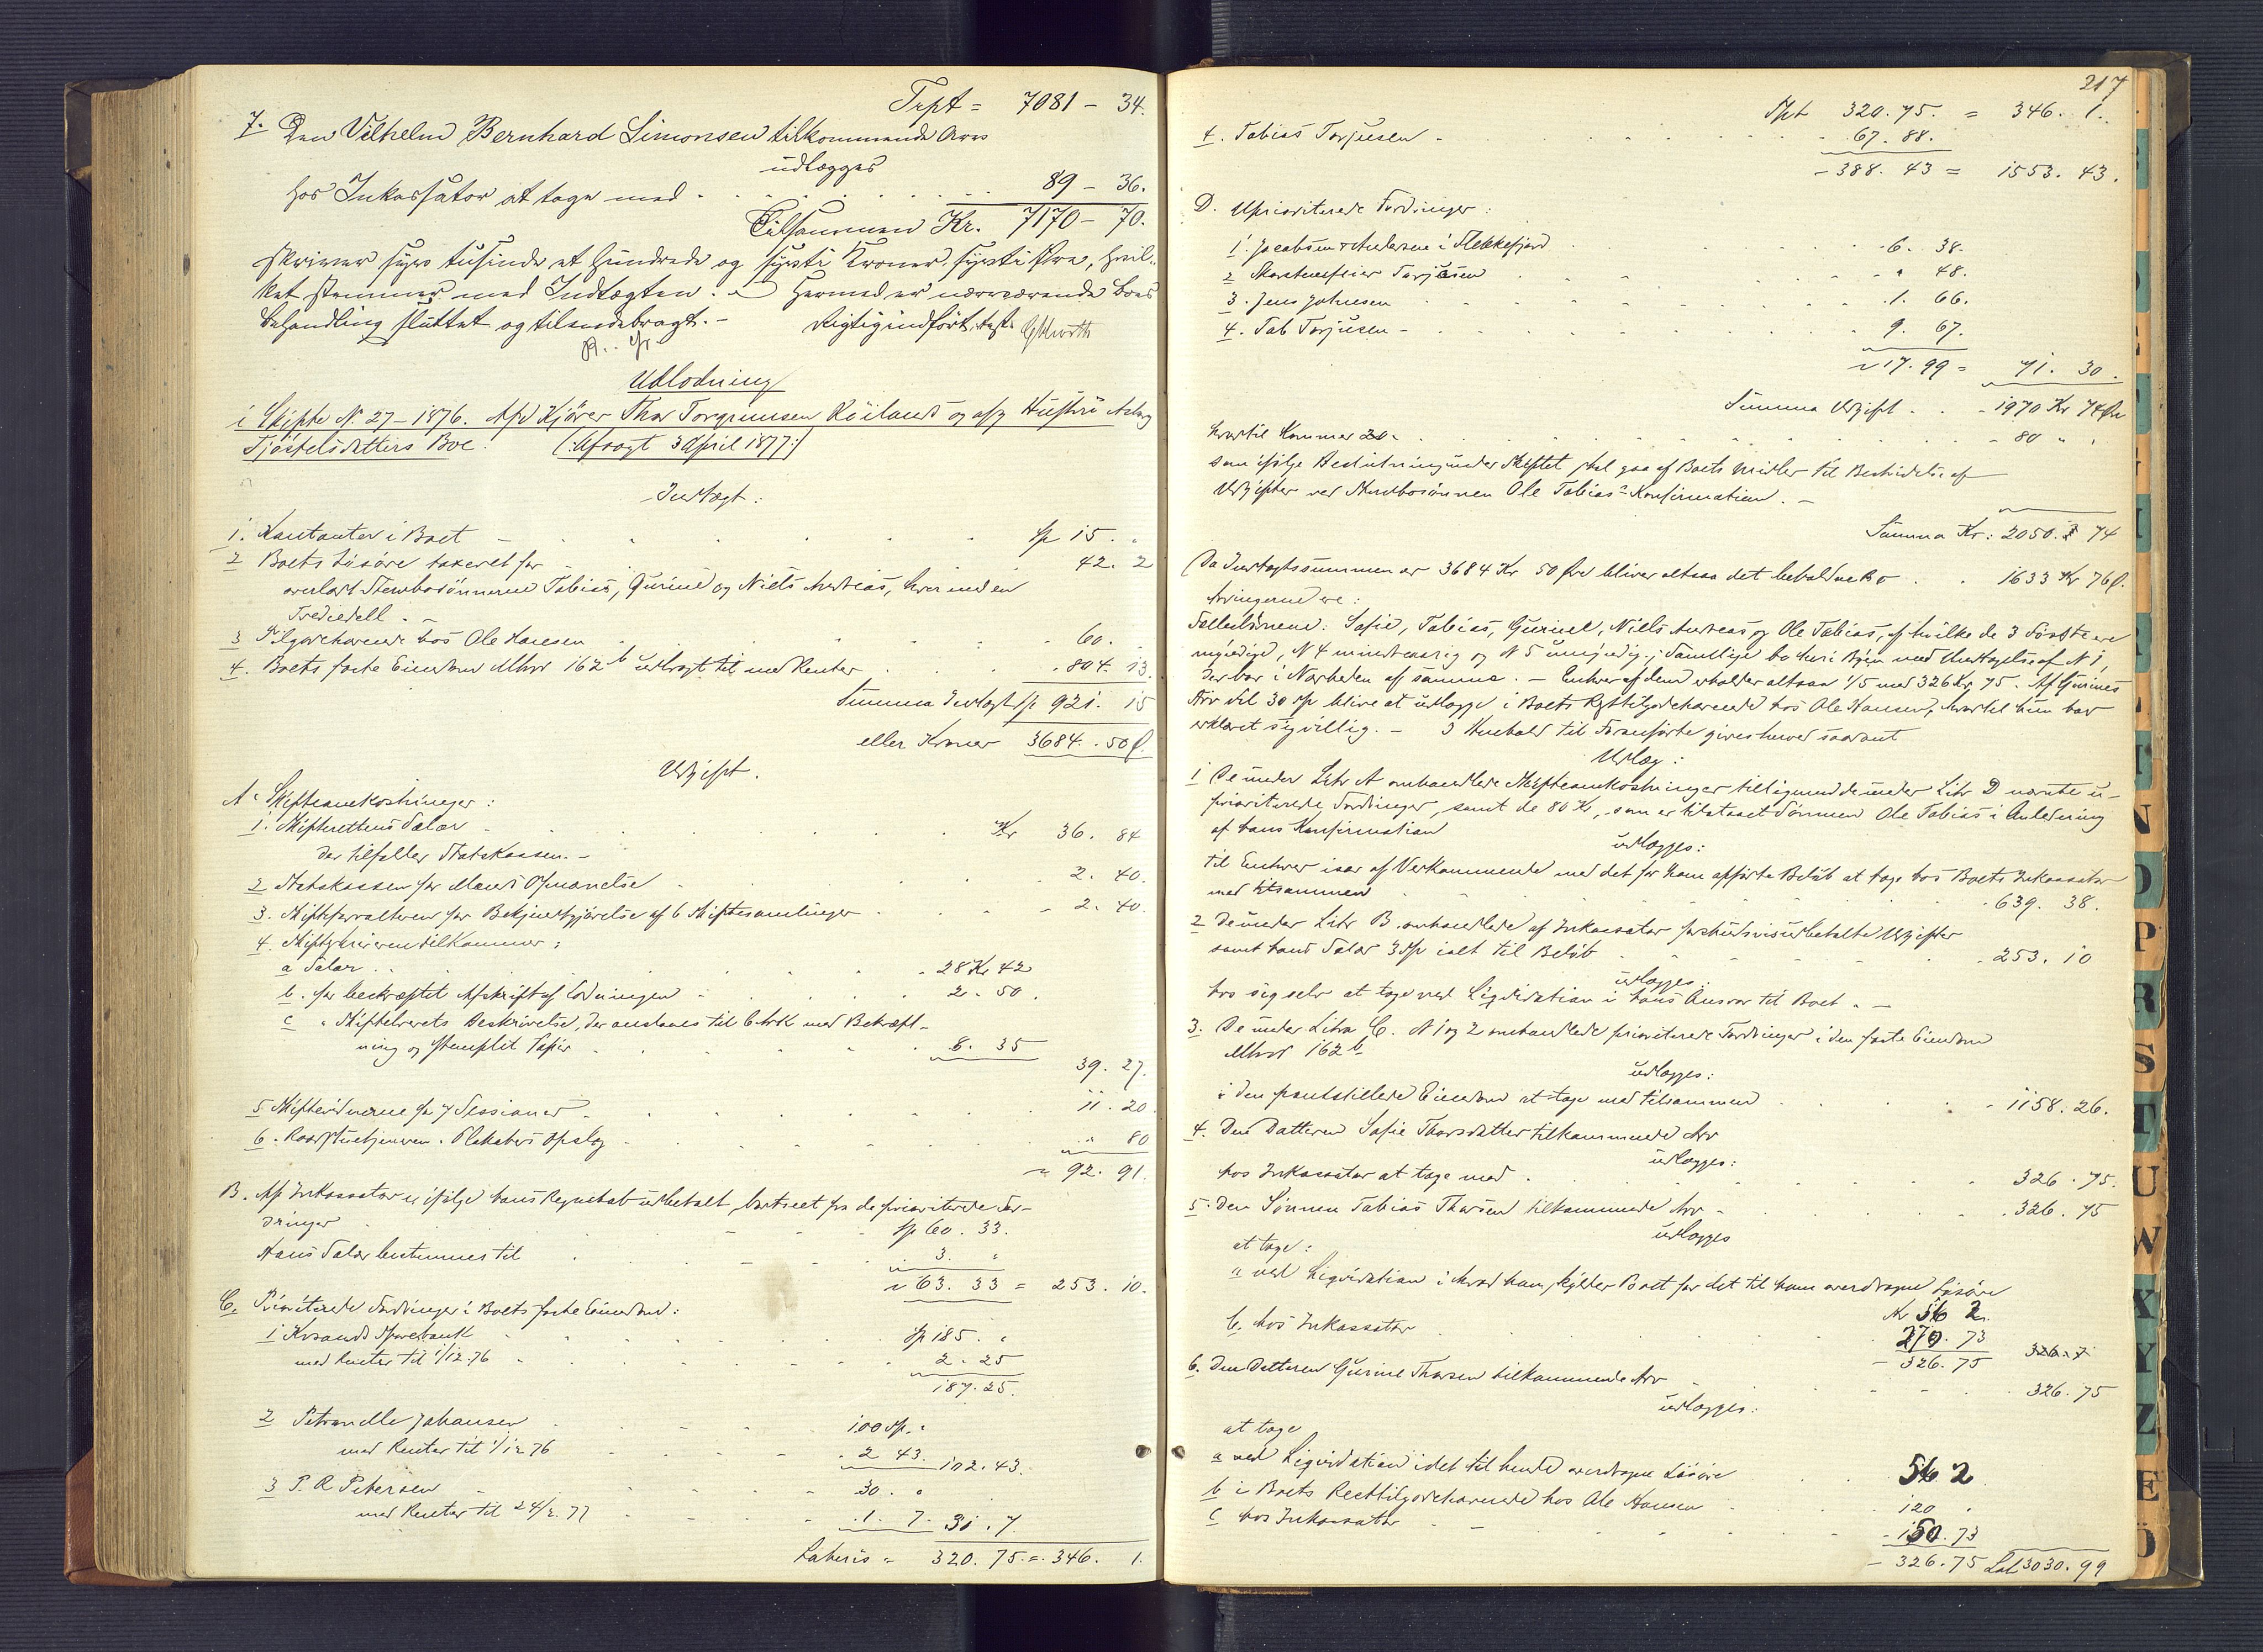 Trpt = 7081 - 34.
7. Den Vilhelm Bernhard Simonsen tilkommende Arv
udlægges
hos Inkassator at tage med - 89 - 36.
Tilsammen Kr. 7170 - 70.
skriver syv tusinde et hundrede og sytti Kroner, sytti Øre, hvil-
ket stemmer med Indtægten. - Hermed er nærværende Boes
Behandling sluttet og tilendebragt. - Rigtig indført,
Udlodning
i Skifte No 27 - 1876. Afd Kjører Thor Torgrimsen Röiland og afg Hustru Aslaug
Tjöstelsdatters Boe. (Afsagt 3 April 1877)
Indtægt:
1. Kontanter i Boet - Sp 15. "
2 Boets Lösöre taxeret for 42. 2
overladt Stervbosönnerne Tobias, Gurine og Niels Andreas, hver med en
Trediedel. -
3 Tilgodehavende hos Ole Hansen 60. "
4. Boets faste Eiendom Mno 162 b udbragt til med Renter 804. 13.
Summa Indtægt Sp 921. 15
eller Kroner 3684. 50 Ø.
Udgift.
A. Skifteomkostninger:
1. Skifterettens Salær Kr 36. 84
der tilfalder Statskassen. -
2 Statskassen for Mænds Opnævnelse 2. 40.
3. Skifteforvalteren for Bekjendtgjörelse af 6 Skiftesamlinger - 2. 40.
4. Skifteskriveren tilkommer:
a Salær 28 Kr 42
b. for bekræftet Afskrift af Lodningen 2. 50.
c " Skiftebrevets Beskrivelse, der ansloes til 6 Ark med Bekræft-
ning og stemplet Papir 8. 35
39. 27.
5 Skiftevidnerne for 7 Sessioner 11. 20
6. Raadstuetjeneren. Plakaters Opslag " 80
" 92. 91.
B. Af Inkassator er ifölge hans Regnskab udbetalt, bortseet fra de prioriterede For-
dringer Sp 60. 33.
Hans Salær bestemmes til 3. "
" 63. 33 = 253. 10.
C. Prioriterede Fordringer i Boets faste Eiendom:
1 Krsands Sparebank Sp 185. "
med Renter til 1/12 76 2. 25
187. 25.
2 Petronelle Johansen 100 Sp. "
med Renter til 1/12 76 2 43.
102. 43.
3 P. R Petersen 30. "
med Renter til 24/2. 77 1. 7. 31. 7.
Lateris " 320. 75. = 346. 1.
217
Tpt 320. 75. = 346. 1.
4. Tobias Torjusen - 67. 88.
- 388. 43 = 1553. 43.
D. Uprioriterede Fordringer:
1. Jacobsen & Andersen i Flekkefjord 6. 38.
2 Skorstensfeier Torjusen " 48.
3. Jens Johnsen 1. 66.
4. Tob Torjusen - 9. 67.
" 17. 99 = 71. 30.
Summa Udgift - 1970 Kr 74 Øre
hvortil kommer 20. 80 " "
som ifölge Beslutning under Skiftet skal gaa af Boets Midler til Bestridelse af
Udgifter ved Stervbosönnen Ole Tobias's Konfirmation. -
Summa Kr: 2050. 74
Da Indtægtssummen er 3684 Kr 50 Øre bliver altsaa det beholdne Bo 1633 Kr 76 Ø.
Arvingerne ere:
Fællesbörnene: Sofie, Tobias, Gurine, Niels Andreas og Ole Tobias, af hvilke de 3 Förste ere
myndige, N 4 mindreaarig og N 5 umyndig; samtlige bo her i Byen med Undtagelse af N 1,
der bor i Nærheden af samme. - Enhver af dem erholder altsaa 1/5 med 326 Kr 75. Af Gurines
Arv vil 30 Sp blive at udlægge i Boets Resttilgodehavende hos Ole Hansen, hvortil hun har
erklæret sig villig. - I Henhold til Foranförte gives herved saadant
Udlæg:
1 De under Litr A omhandlede Skifteomkostninger tilligemed de under Litr D nævnte u-
prioriterede Fordringer, samt de 80 Kr, som er tilstaaet Sönnen Ole Tobias i Anledning
af hans Konfirmation
udlægges:
til Enhver især af Vedkommende med det for ham opförte Belöb at tage hos Boets Inkassator
med tilsammen 639. 38.
2 De under Litr B. omhandlede af Inkassator forskudsvis udbetalte Udgifter
samt hans Salær 3 Sp ialt til Belöb 253. 10
udlægges.
hos sig selv at tage ved Liqvidation i hans Ansvar til Boet. -
3. De under Litra C. N 1 og 2 omhandlede prioriterede Fordringer i den faste Eiendom
Mno 162 b
udlægges:
i den pantstillede Eiendom at tage med tilsammen 1158. 26.
4. Den Datteren Sofie Thorsdatter tilkommende Arv
udlægges:
hos Inkassator at tage med 326. 75.
5. Den Sönnen Tobias Thorsen tilkommende Arv - 326. 75
udlægges
at tage:
a ved Liqvidation i hvad han skylder Boet for det til ham overdragne Lösöre
Kr 56 2.
b. hos Inkassator 270. 73
- 326. 75 326. 7
6. Den Datteren Gurine Thorsen tilkommende Arv 326. 75
udlægges:
at tage
a ved Liqvidation i det til hende overdragne Lösöre 56 2
b i Boets Resttilgodehavende hos Ole Hansen 120 "
c hos Inkassator 150. 73
- 326. 75 Lat 3030. 99
N
O
P
R
S
T
U
W
X
Y
Z
Æ
Ö